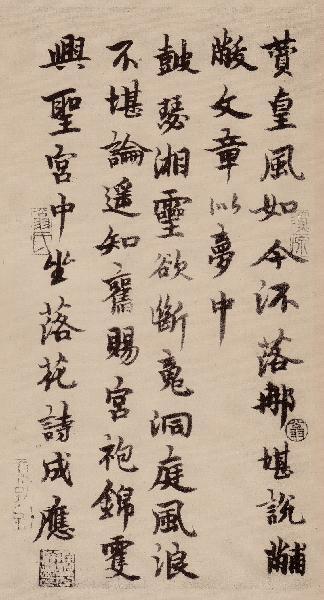 賛皇風如今流落那堪說黼
黻文章似夢中
鼓瑟湘靈欲斷魂洞庭風浪
不堪論遥知舊賜宮袍錦
興聖宮中坐落花詩成應